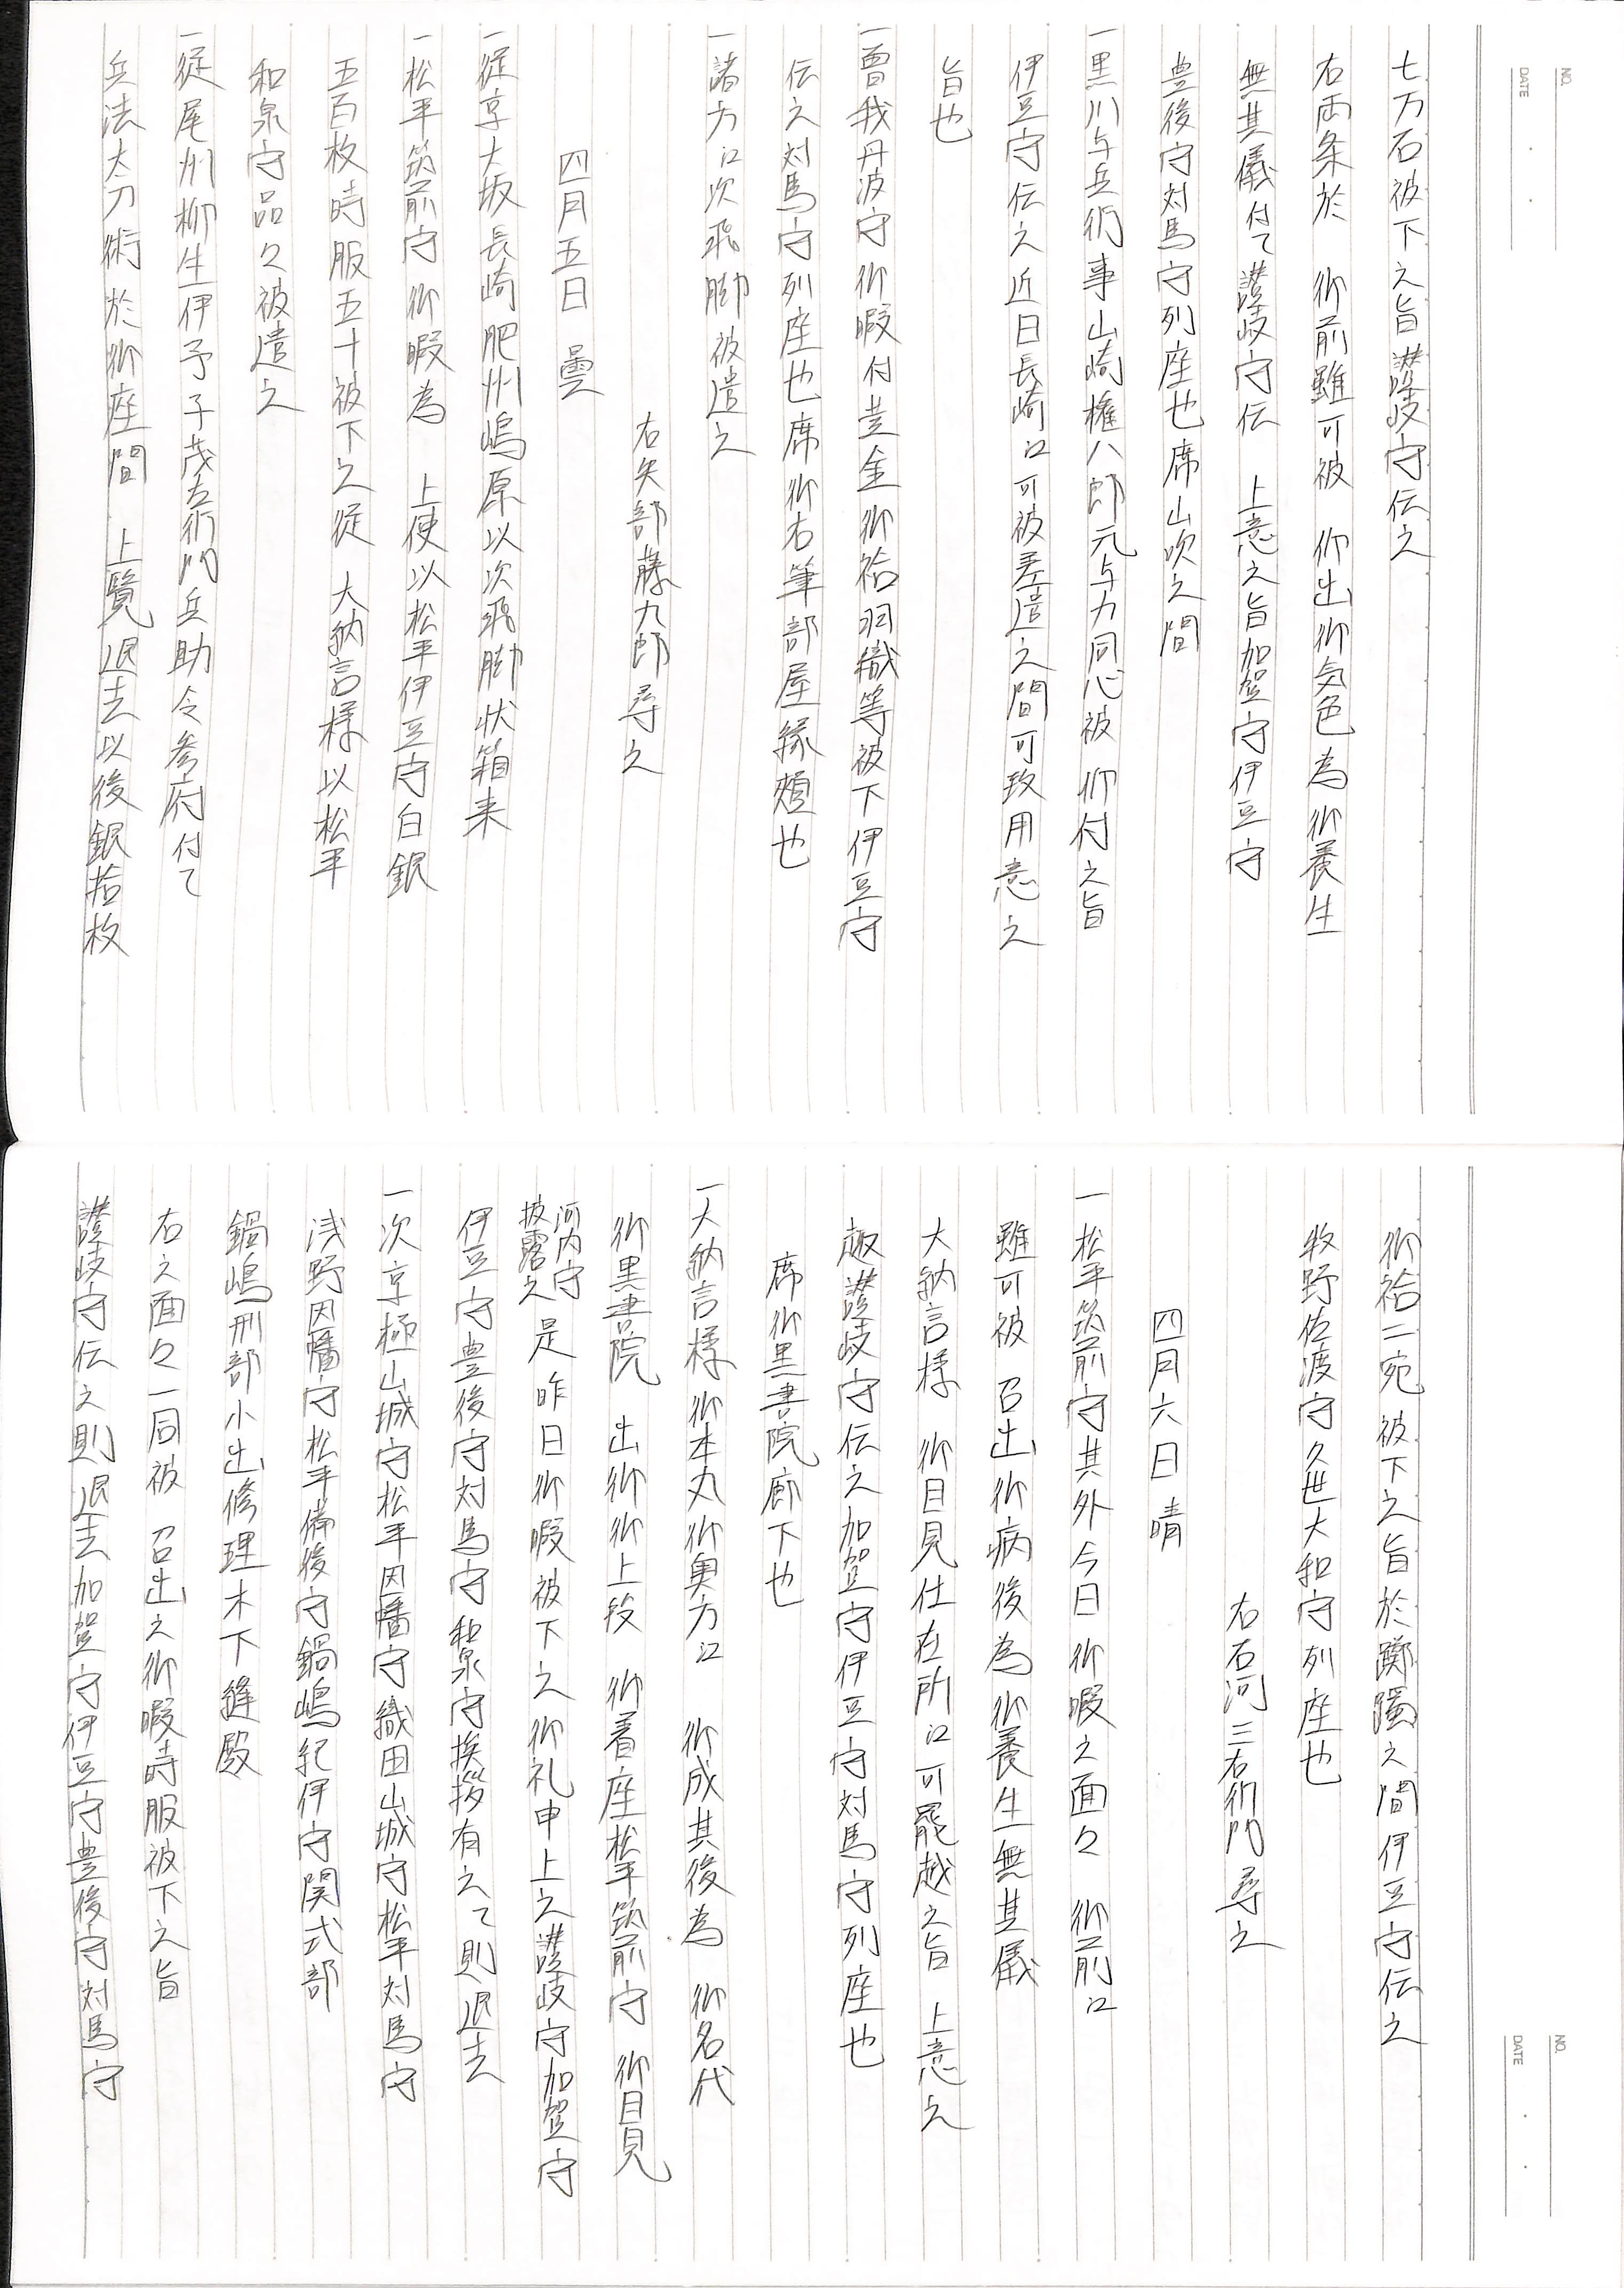 NO.
DATE
七万石被下之旨讃岐守伝之
右両条於　御前雖可被　仰出御気色為御養生
無其儀付て讃岐守伝　上意之旨加賀守伊豆守
豊後守対馬守列座也席山吹之間
一黒川与兵衛事山崎権八郎元与力同心被　仰付之旨
伊豆守伝之近日長崎江可被差遣之間可致用意之
旨也
一曽我丹波守御暇付黄金御袷羽織等被下伊豆守
伝之対馬守列座也席御右筆部屋縁頬也
一諸方江次飛脚被遣之
右矢部藤九郎尋之
四月五日　曇
一従京大坂長崎肥州嶋原以次飛脚状箱来
一松平筑前守　御暇為　上使以松平伊豆守白銀
五百枚時服五十被下之従　大納言様以松平
和泉守品々被遣之
一従尾州柳生伊予子茂左衛門兵助令参府付て
兵法太刀術於御座間　上覧退去以後銀拾枚
NO.
DATE
御袷二宛　被下之旨於躑躅之間伊豆守伝之
牧野佐渡守久世大和守列座也
右石河三右衛門尋之
四月六日　晴
一松平筑前守其外今日　御暇之面々　御前江
雖可被　召出御病後為御養生無其儀
大納言様　御目見仕在所江可罷越之旨　上意之
趣讃岐守伝之加賀守伊豆守対馬守列座也
席御黒書院廊下也
一大納言様御本丸御奥方江　御成其後為　御名代
御黒書院　出御御上段　御着座松平筑前守　御目見
河内守披露之　是昨日御暇被下之御礼申上之讃岐守加賀守
伊豆守豊後守対馬守和泉守挨拶有之て則退去
一次京極山城守松平因幡守織田山城守松平対馬守
浅野因幡守松平備後守鍋嶋紀伊守関式部
鍋嶋刑部小出修理木下縫殿
右之面々一同被　召出之御暇時服被下之旨
讃岐守伝之則退去加賀守伊豆守豊後守対馬守